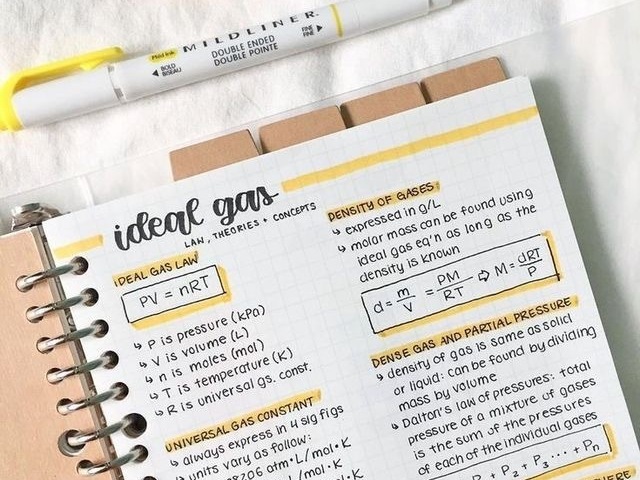 MILDLINER.
Mild Ink
DOUBLE ENDED
DOUBLE POINTE
BOLD
BISEAU
FINE
FINE
ideal gas
LAW, THEORIES + CONCEPTS
IDEAL GAS LAW
PV = nRT
↳ P is pressure (kPa)
↳ V is volume (L)
↳ n is moles (mol)
↳ T is temperature (K)
↳ R is universal gs. const.
UNIVERSAL GAS CONSTANT
↳ always express in 4 sig figs
↳ units vary as follow:
8206 atm·L/mol·K
L/mol·K
DENSITY OF GASES
↳ expressed in g/L
↳ molar mass can be found using
ideal gas eq'n as long as the
density is known
d = m/V = PM/RT ⇨ M = dRT/P
DENSE GAS AND PARTIAL PRESSURE
↳ density of gas is same as solid
or liquid: can be found by dividing
mass by volume
↳ Dalton's law of pressures: total
pressure of a mixture of gases
is the sum of the pressures
of each of the individual gases
+ P2 + P3 ... + Pn